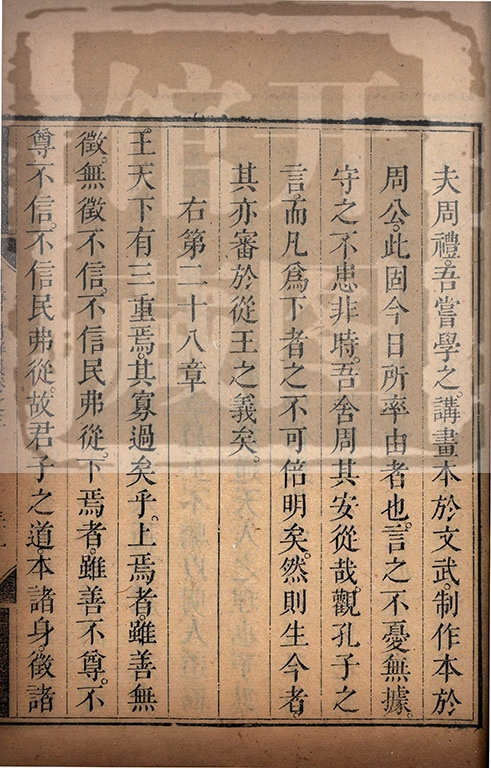 夫周禮。吾嘗學之。講畫本於文武。制作本於
周公。此固今日所率由者也。言之不憂無據。
守之不患非時。吾舍周其安從哉。觀孔子之
言。而凡爲下者之不可倍明矣。然則生今者。
其亦審於從王之義矣。
右第二十八章
王天下有三重焉。其寡過矣乎。上焉者。雖善無
徵。無徵不信。不信民弗從。下焉者。雖善不尊。不
尊不信。不信民弗從。故君子之道。本諸身。徵諸